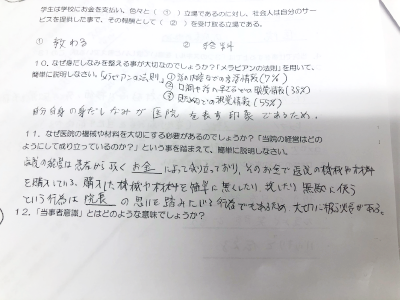 学生は学校にお金を支払い、色々と（ ① ）立場であるのに対し、社会人は自分のサー
ビスを提供した事で、その報酬として（ ② ）を受け取る立場である。
① 教わる ② 給料
１０．なぜ身だしなみを整える事が大切なのでしょうか？「メラビアンの法則」を用いて、
簡単に説明しなさい。「メラビアンの法則」 ① 話の内容などの言語情報(7%)
② 口調や話の早さなどの聴覚情報(38%)
③ 見た目などの視覚情報(55%)
自分自身の身だしなみが医院を表す印象であるため。
１１．なぜ医院の機械や材料を大切にする必要があるのでしょうか？「当院の経営はどの
ようにして成り立っているのか？」という事を踏まえて、簡単に説明しなさい。
医院の経営は患者から頂くお金によって成り立っており、そのお金で医院の機械や材料
を購入している。購入した機械や材料を簡単に無くしたり、壊したり無駄に使う
という行為は院長の思いを踏みにじる行為でもあるため、大切に扱う必要がある。
１２．「当事者意識」とはどのような意味でしょうか？